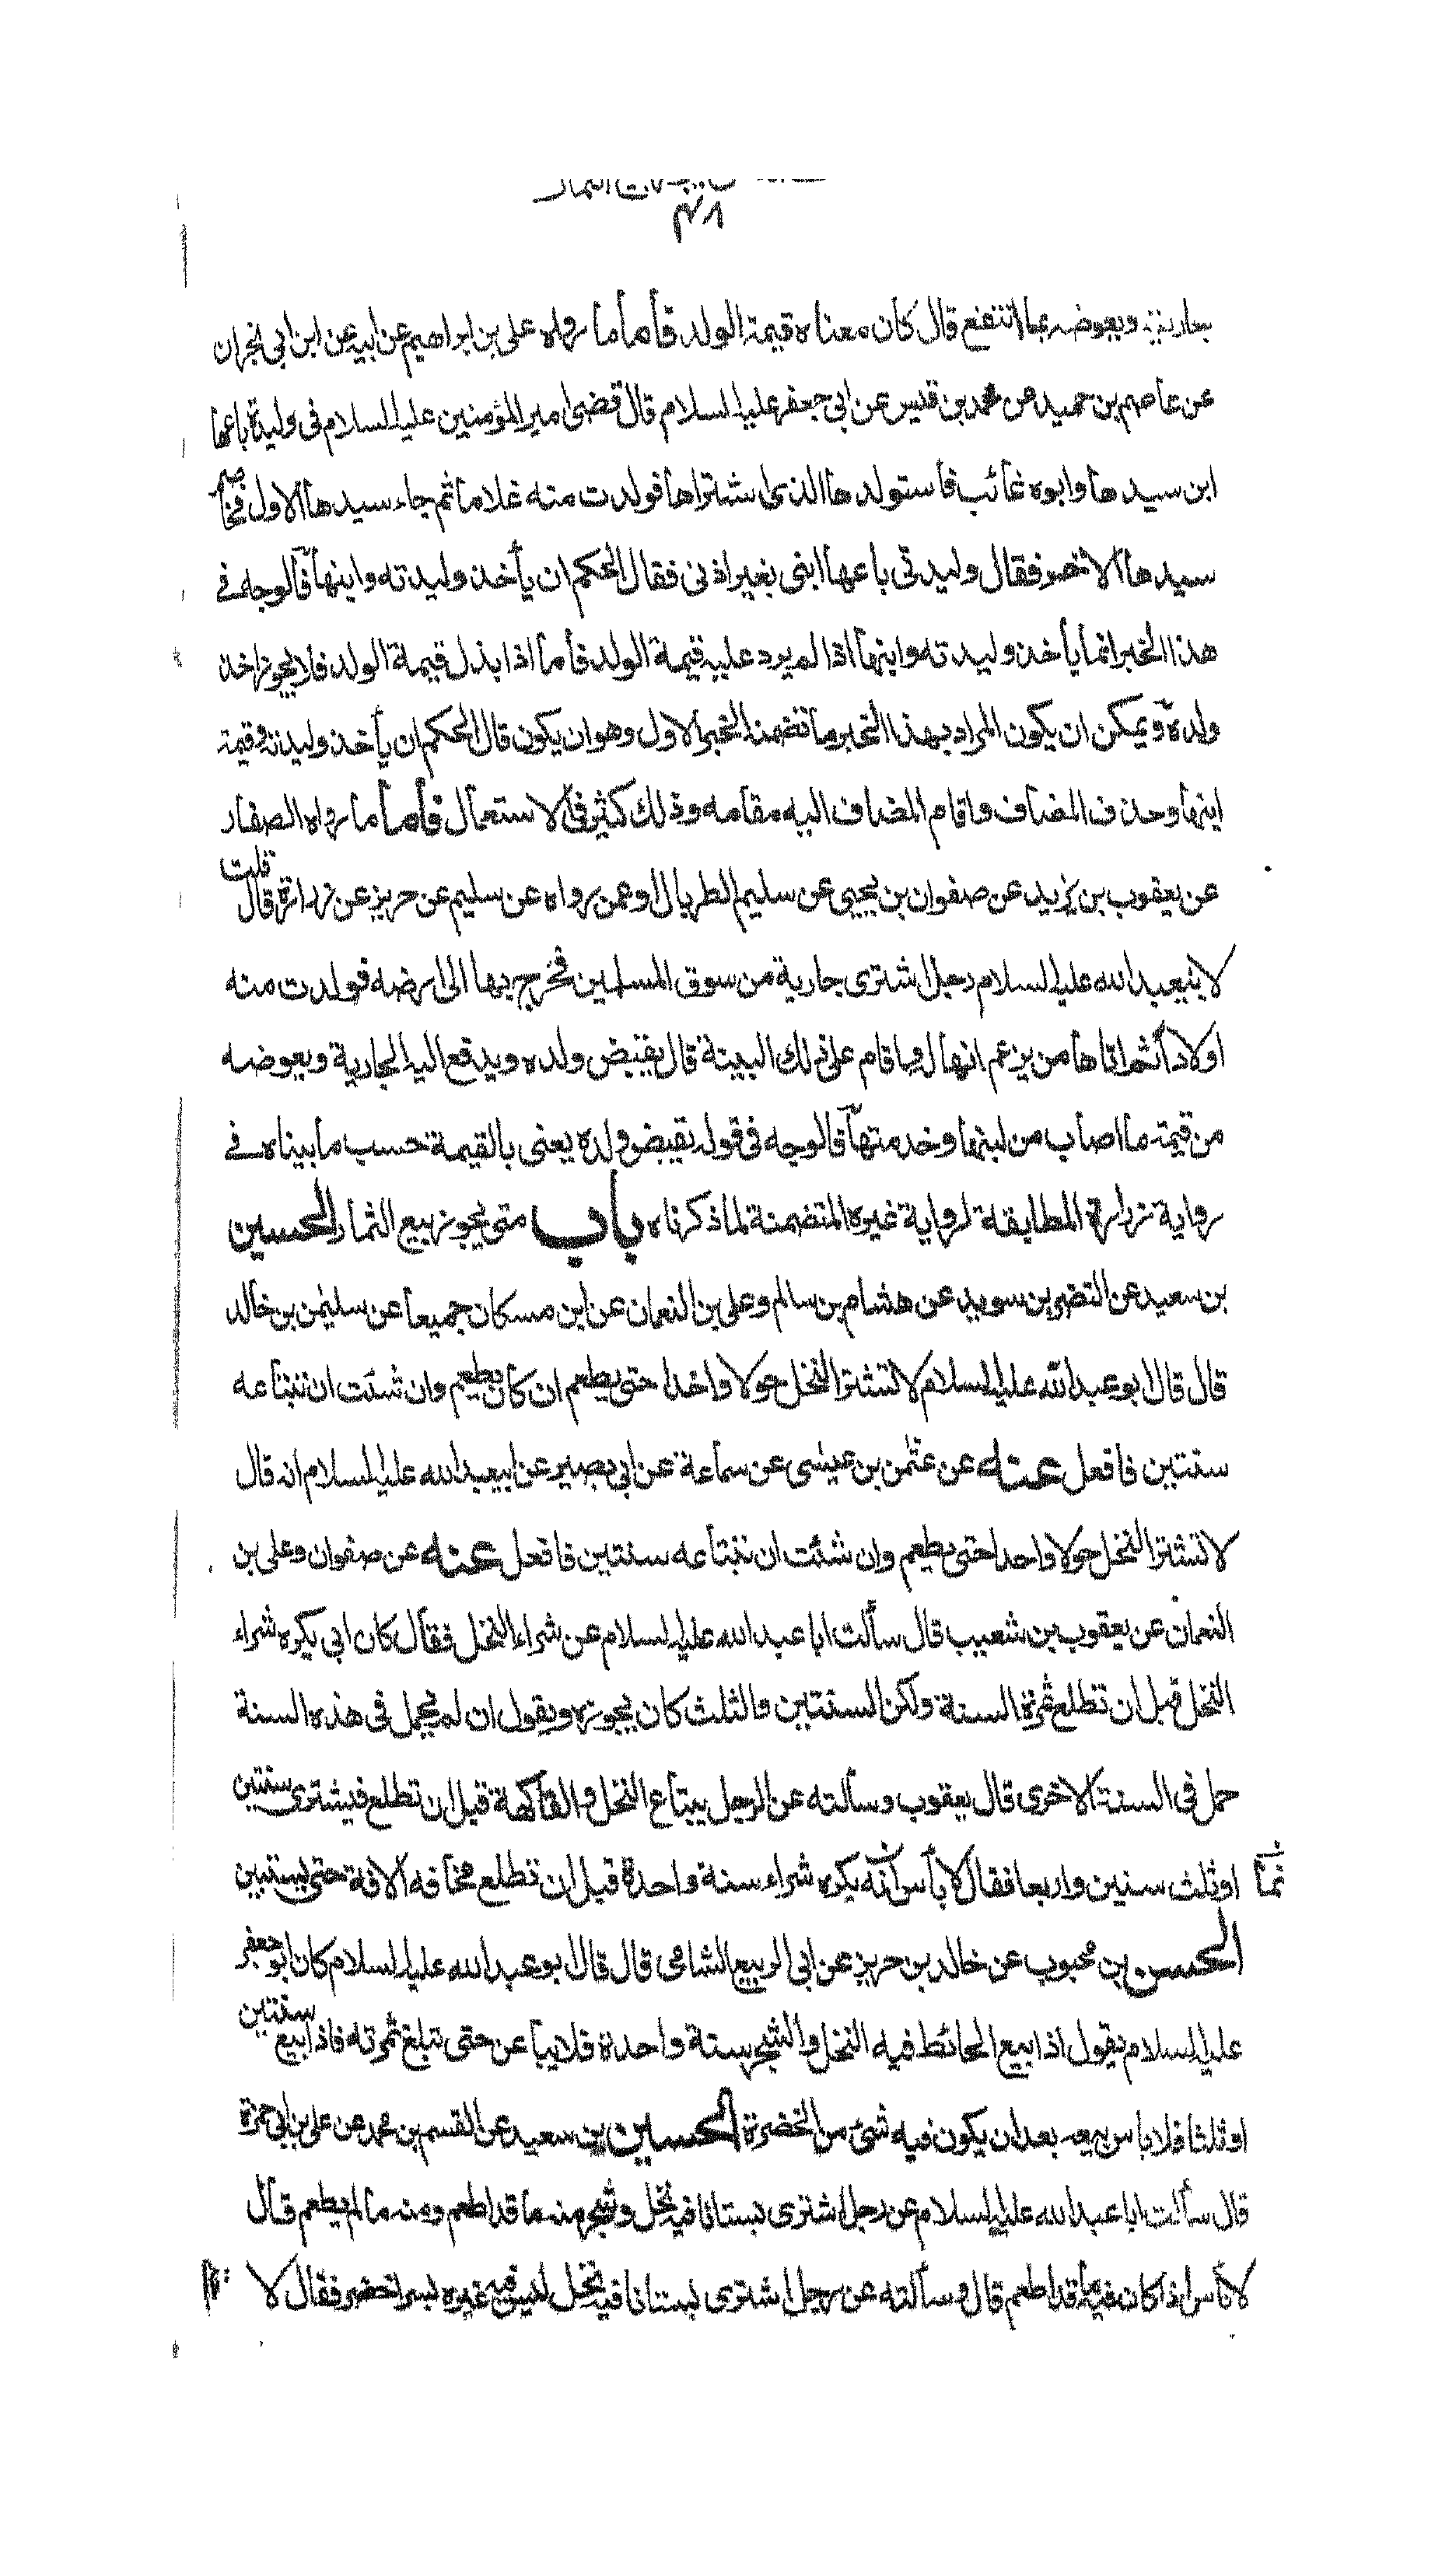 ٣٨
جاريته ويعوضه بما انتفع قال كان معناه قيمة الولد فأما ما رواه على بن ابراهيم عن ابيه عن ابن ابي نجران
عن عاصم بن حميد عن محمد بن قيس عن ابي جعفر عليه السلام قال قضى امير المؤمنين عليه السلام في وليدة باعها
ابن سيدها وابوه غائب فأستولدها الذى اشتراها فولدت منه غلاما ثم جاء سيدها الاول فخاصم
سيدها الاخر فقال وليدتي باعها ابنى بغير اذنى فقال الحكم ان يأخذ وليدته وابنها فالوجه في
هذا الخبر انما يأخذ وليدته وابنها اذا لم يرد عليه قيمة الولد فأما اذا بذل قيمة الولد فلا يجوز اخذ
ولده ويمكن ان يكون المراد بهذا الخبر ما تضمنه الخبر الاول وهو ان يكون قال الحكم ان يأخذ وليدته وقيمة
ابنها وحذف المضاف واقام المضاف اليه مقامه وذلك كثير في الاستعمال فأما ما رواه الصفار
عن يعقوب بن يزيد عن صفوان بن يحيى عن سليم الطربال او عمن رواه عن سليم عن حريز عن زرارة قال قلت
لابيعبدالله عليه السلام رجل اشترى جارية من سوق المسلمين فخرج بها الى ارضه فولدت منه
اولادا ثم اتاها من يزعم انها له واقام على ذلك البينة قال يقبض ولده ويدفع اليه الجارية ويعوضه
من قيمة ما اصاب من لبنها وخدمتها فالوجه في قوله يقبض ولده يعنى بالقيمة حسب ما بيناه في
رواية زرارة المطابقة لرواية غيره المتضمنة لما ذكرناه باب متى يجوز بيع الثمار الحسين
بن سعيد عن النضر بن سويد عن هشام بن سالم وعلى بن النعمان عن ابن مسكان جميعا عن سليمن بن خالد
قال قال ابو عبدالله عليه السلام لا تشتر النخل حولا واحدا حتى يطعم ان كان يطعم وان شئت ان تبتاعه
سنتين فافعل عنه عن عثمن بن عيسى عن سماعة عن ابي بصير عن ابيعبدالله عليه السلام انه قال
لا تشتر النخل حولا واحدا حتى يطعم وان شئت ان تبتاعه سنتين فافعل عنه عن صفوان وعلى بن
النعمان عن يعقوب بن شعيب قال سألت ابا عبدالله عليه السلام عن شراء النخل فقال كان ابي يكره شراء
النخل قبل ان تطلع ثمرة السنة ولكن السنتين والثلث كان يجوزه ويقول ان لم يحمل في هذه السنة
حمل في السنة الاخرى قال يعقوب وسألته عن الرجل يبتاع النخل والفاكهة قبل ان تطلع فيشترى سنتين
او ثلث سنين واربعا فقال لا بأس انه يكره شراء سنة واحدة قبل ان تطلع مخافه الافة حتى يستبين
الحسن بن محبوب عن خالد بن حريز عن ابي الربيع الشامى قال قال ابو عبدالله عليه السلام كان ابو جعفر
عليه السلام يقول اذا بيع الحائط فيه النخل والشجر سنة واحدة فلا يباعن حتى تبلغ ثمرته فاذا بيع سنتين
او ثلثا فلا باس ببيعه بعد ان يكون فيه شئ من الخضرة الحسين بن سعيد عن القسم بن محمد عن على بن ابي حمزة
قال سألت ابا عبدالله عليه السلام عن رجل اشترى بستانا فيه نخل وشجر منه ما قد اطعم ومنه ما لم يطعم قال
لا بأس اذا كان فيه ما قد اطعم قال وسألته عن رجل اشترى بستانا فيه نخل ليس فيه غيره بسرا خضر فقال لا